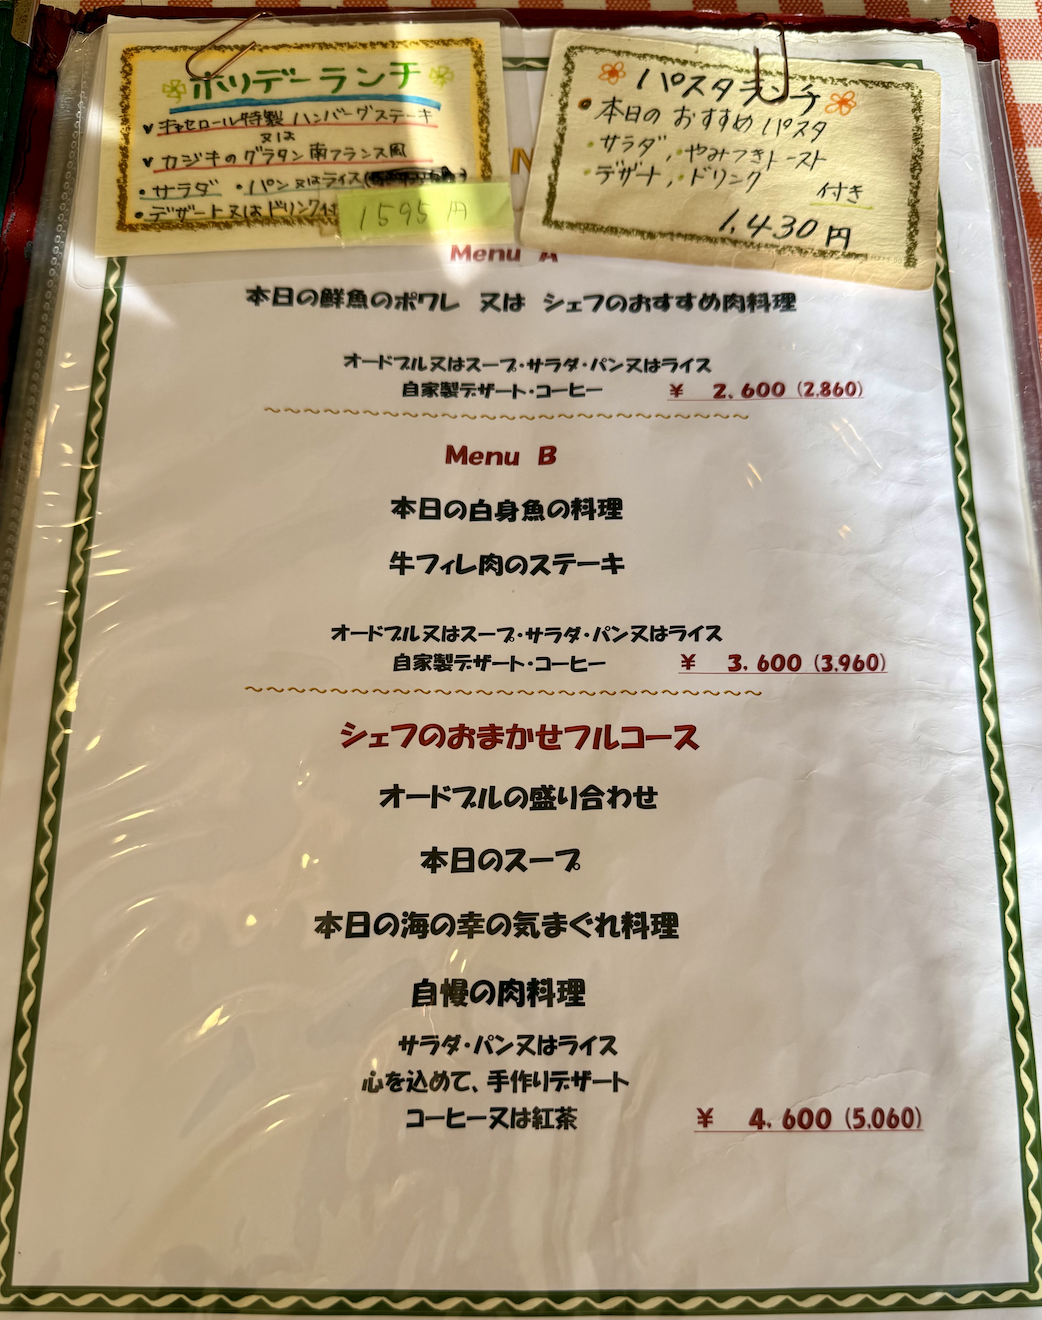 ホリデーランチ
キャセロール特製 ハンバーグステーキ
又は
カジキのグラタン南フランス風
・サラダ ・パン又はライス
・デザート又はドリンク付
1595円
パスタランチ
・本日の おすすめ パスタ
・サラダ,・やみつきトースト
・デザート,・ドリンク
付き
1,430円
Menu A
本日の鮮魚のポワレ 又は シェフのおすすめ肉料理
オードブル又はスープ・サラダ・パン又はライス
自家製デザート・コーヒー ¥ 2,600 (2,860)
Menu B
本日の白身魚の料理
牛フィレ肉のステーキ
オードブル又はスープ・サラダ・パン又はライス
自家製デザート・コーヒー ¥ 3,600 (3,960)
シェフのおまかせフルコース
オードブルの盛り合わせ
本日のスープ
本日の海の幸の気まぐれ料理
自慢の肉料理
サラダ・パン又はライス
心を込めて、手作りデザート
コーヒー又は紅茶 ¥ 4,600 (5,060)